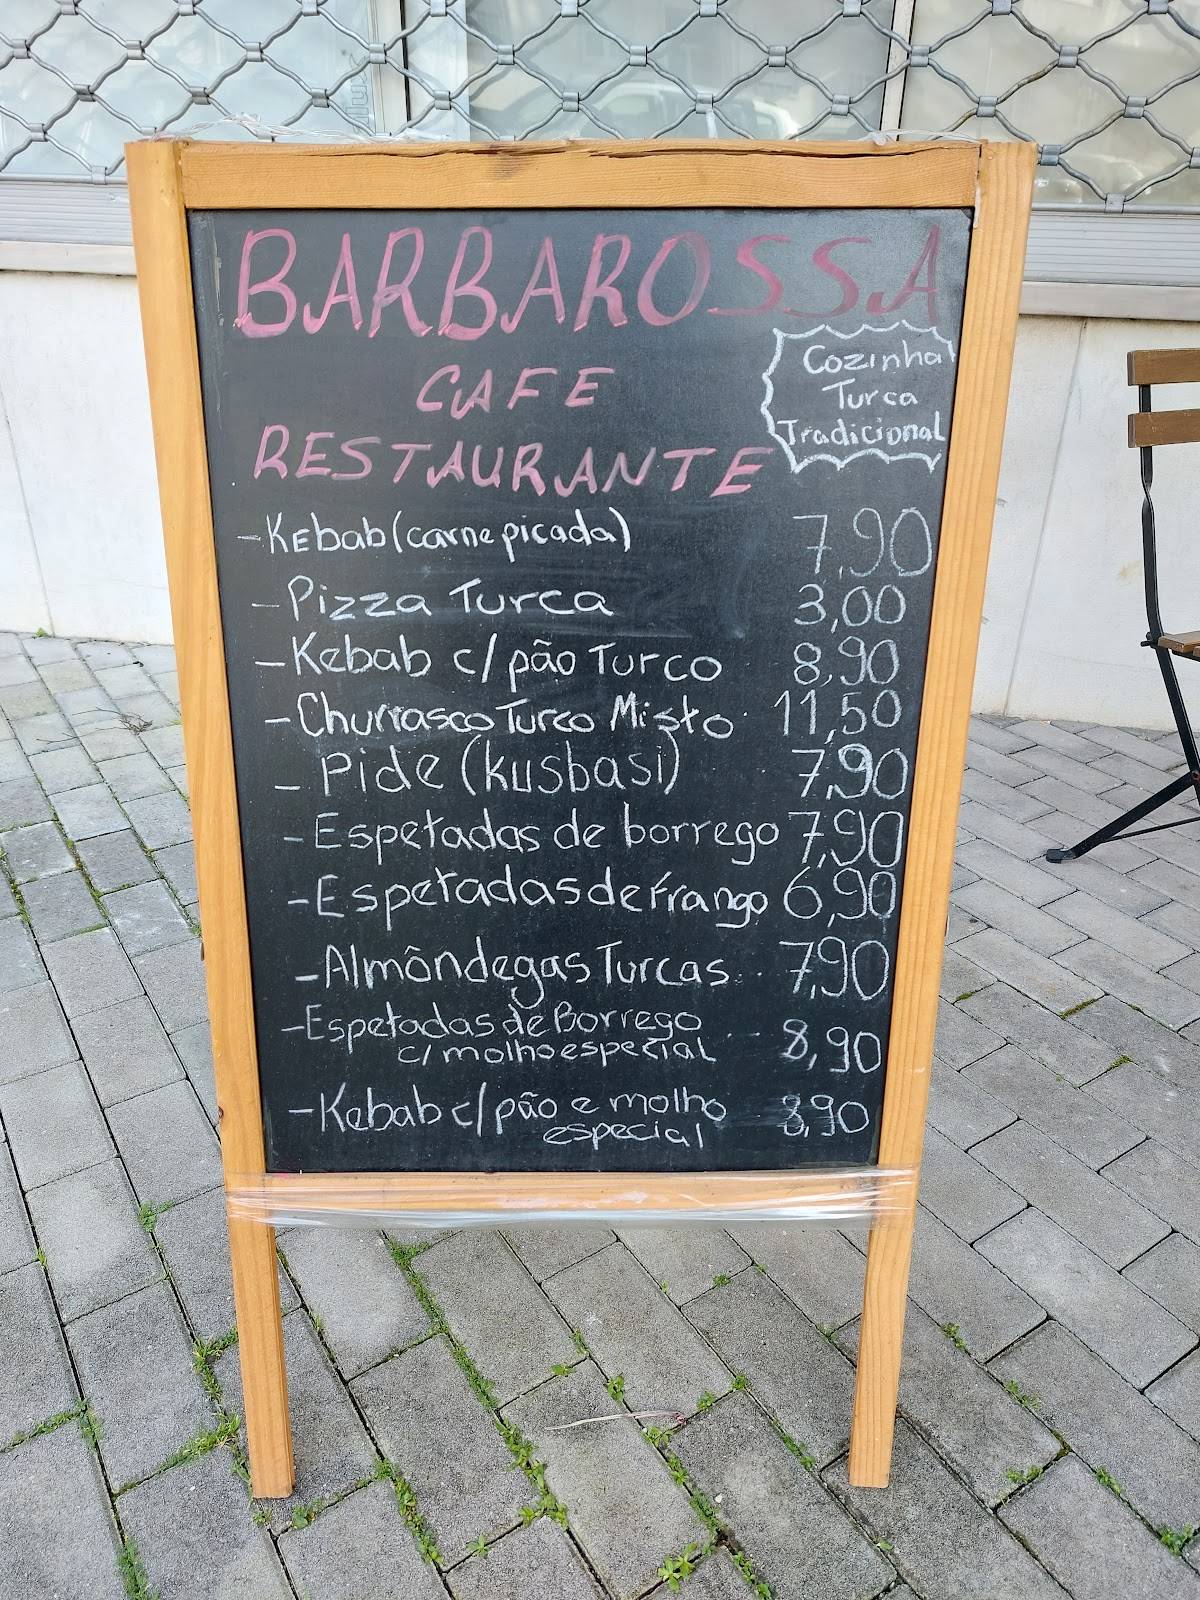 BARBAROSSA
CAFE
RESTAURANTE
Cozinha
Turca
Tradicional
- Kebab (carne picada) 7,90
- Pizza Turca 3,00
- Kebab c/ pão Turco 8,90
- Churrasco Turco Misto 11,50
- Pide (kusbasi) 7,90
- Espetadas de borrego 7,90
- Espetadas de frango 6,90
- Almôndegas Turcas .. 7,90
- Espetadas de Borrego ... 8,90
c/ molho especial
- Kebab c/ pão e molho 8,90
especial